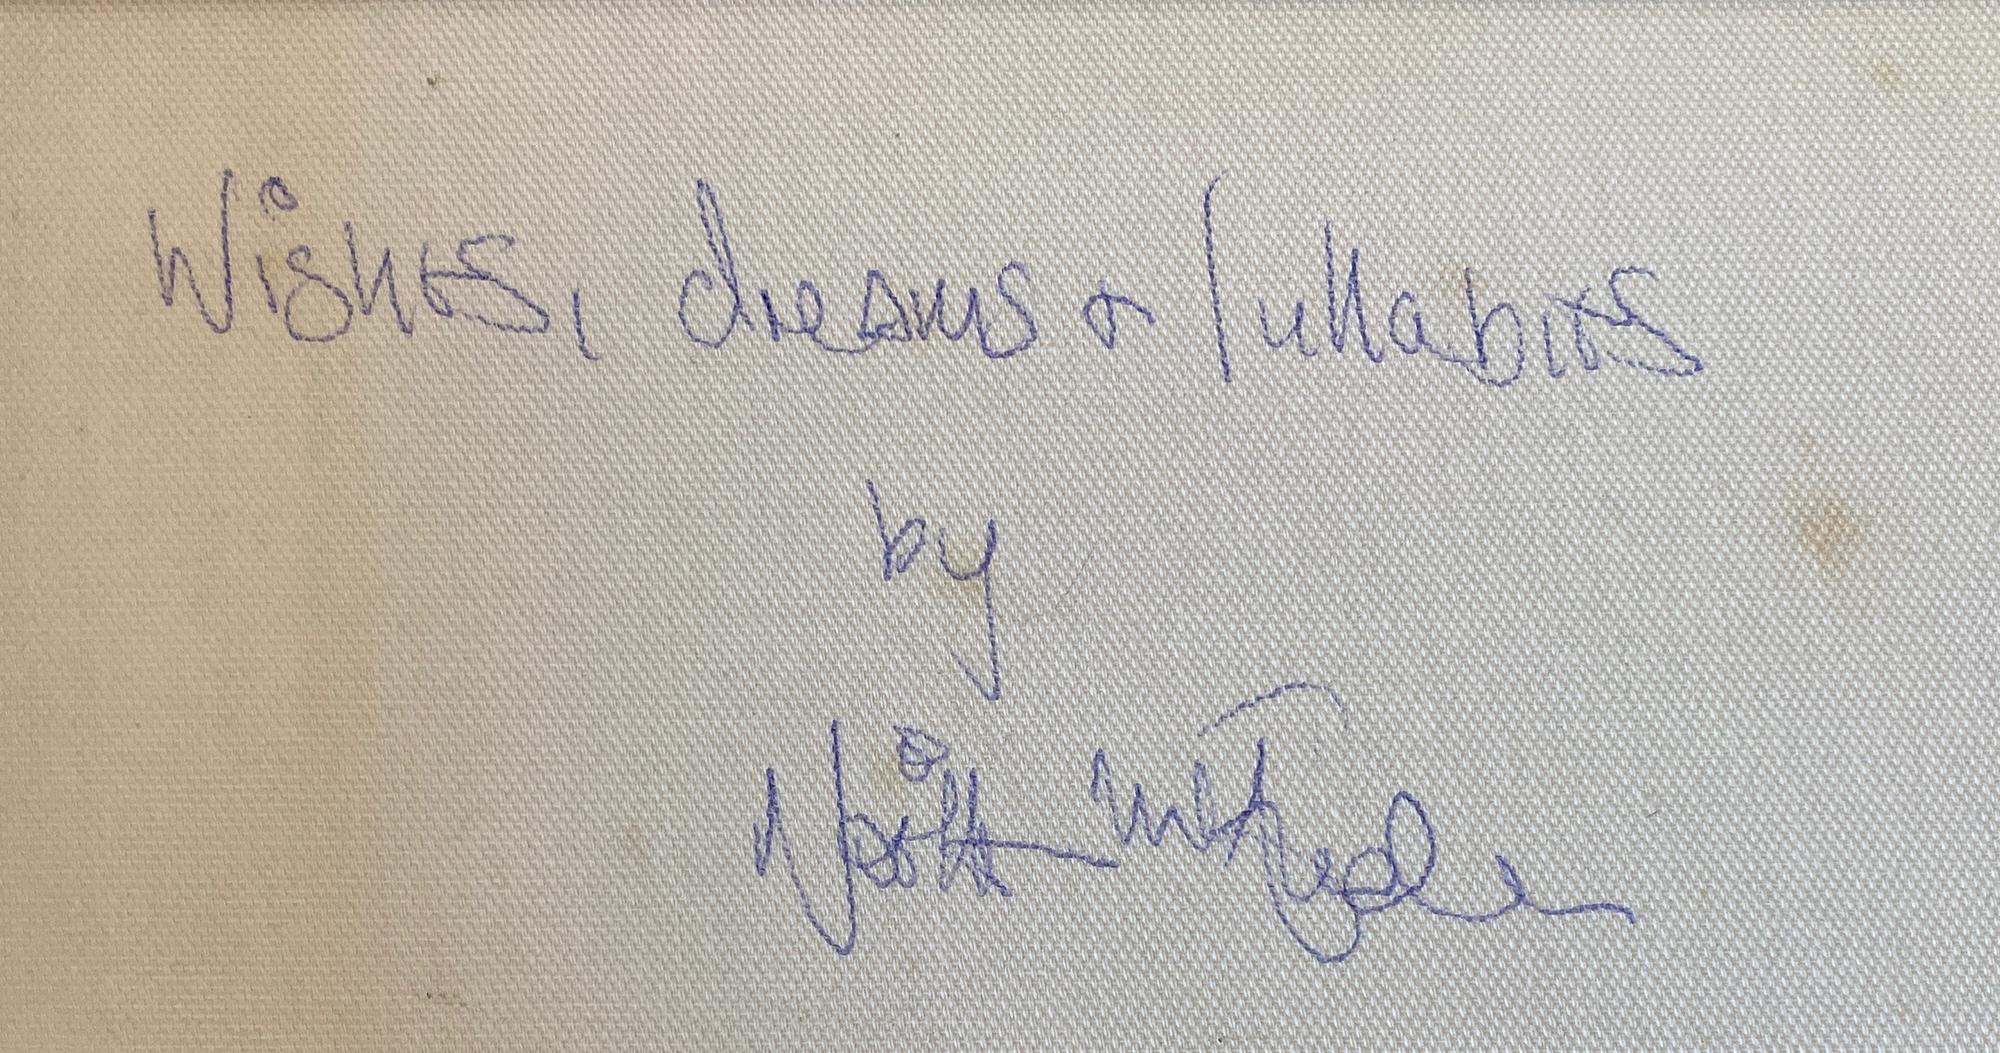 Wishes, dreams & lullabies
by